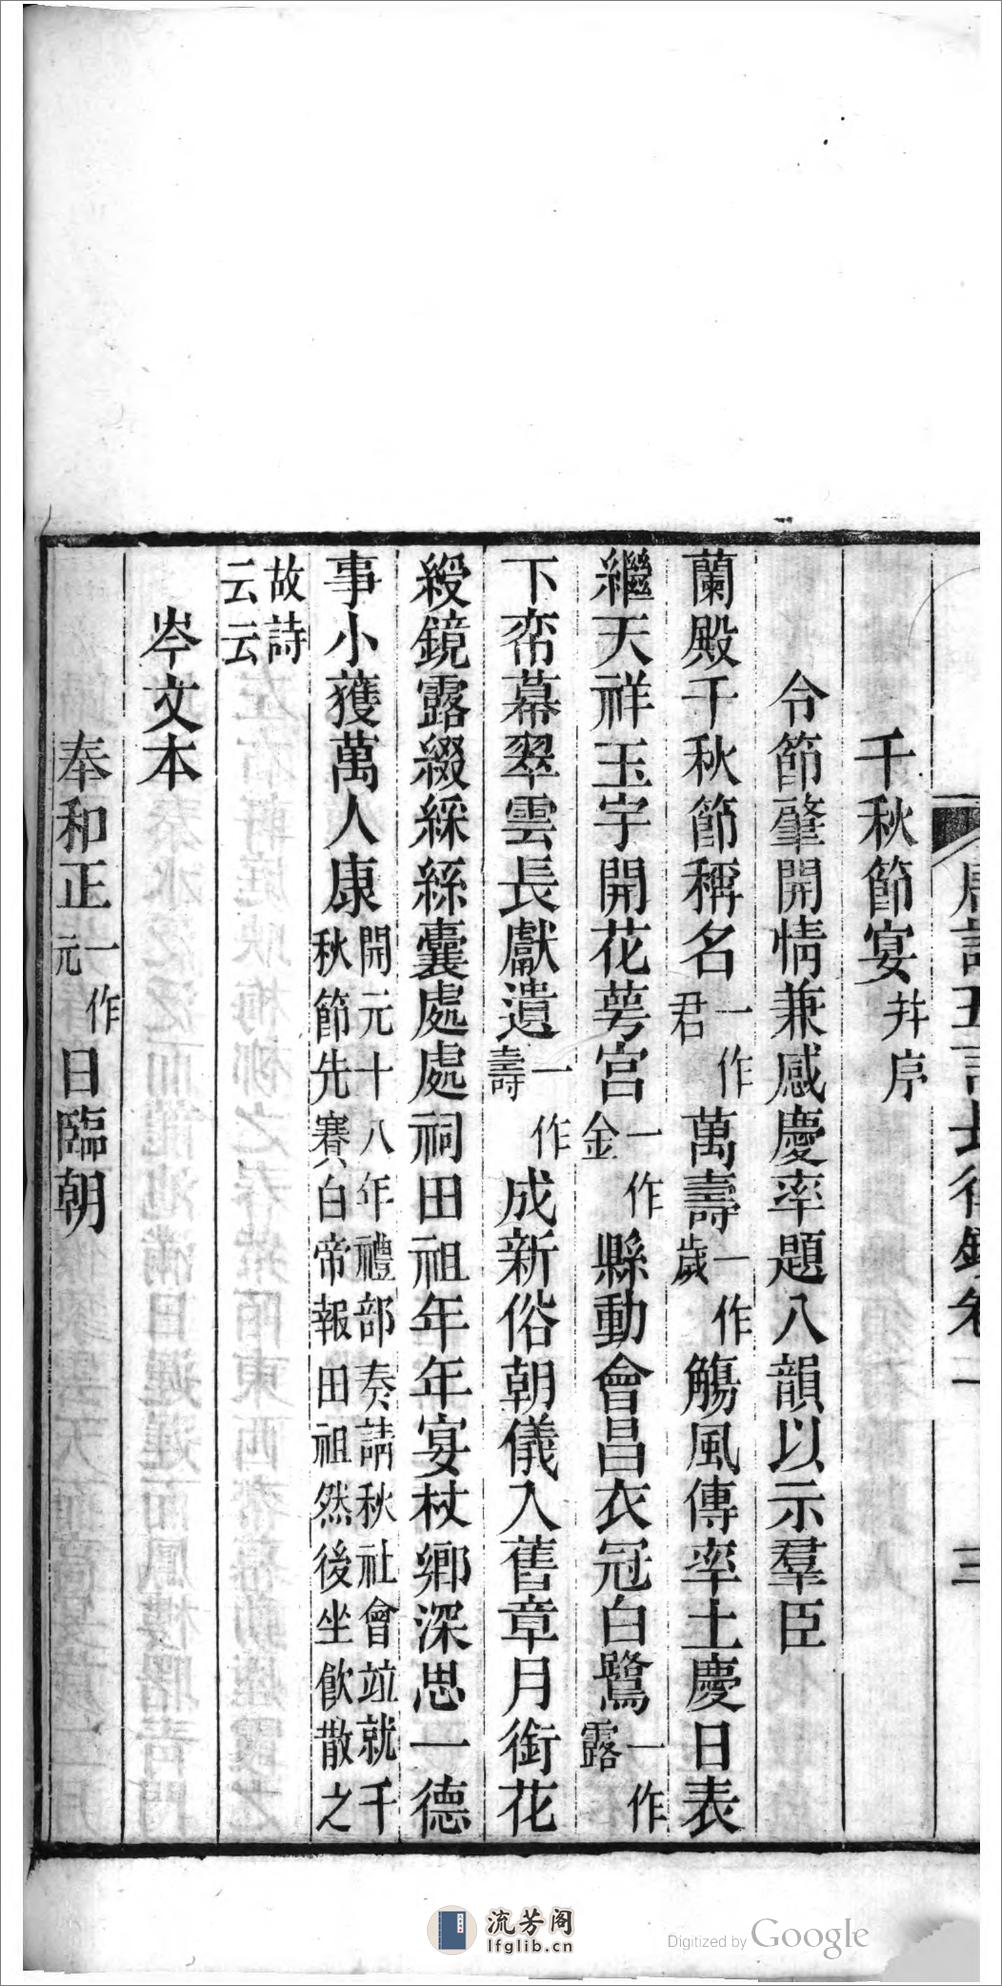 千秋節宴并序
令節肇開情兼感慶率題八韻以示羣臣
蘭殿千秋節稱名一作君萬壽一作歲觴風傳率土慶日表
繼天祥玉宇開花萼宮一作金縣動會昌衣冠白鷺一作露
下帟幕翠雲長獻遺一作壽成新俗朝儀入舊章月銜花
綬鏡露綴綵絲囊處處祠田祖年年宴杖鄉深思一德
事小獲萬人康開元十八年禮部奏請秋社會竝就千秋節先賽白帝報田祖然後坐飮散之
故詩云云
岑文本
奉和正一作元日臨朝
流芳阁
lfglib.cn
Digitized by Google